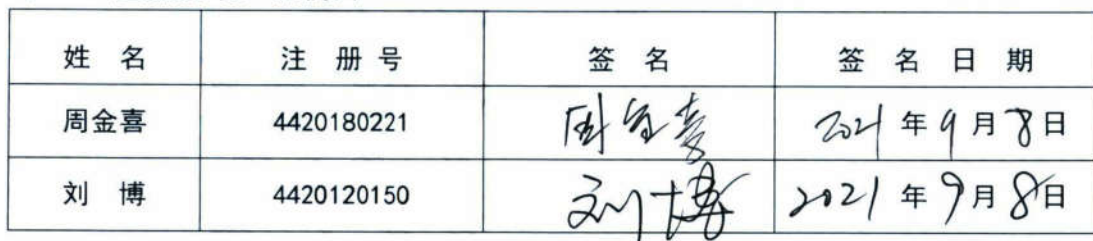 姓 名 注 册 号 签 名 签 名 日 期
周金喜 4420180221 周金喜 2021 年 9 月 8 日
刘 博 4420120150 刘博 2021 年 9 月 8 日